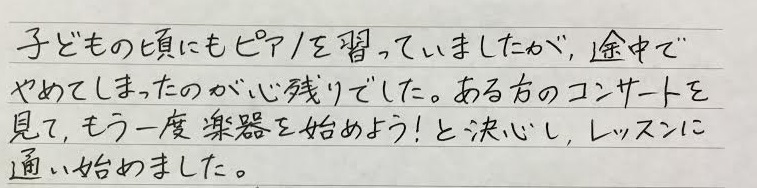 子どもの頃にもピアノを習っていましたが,途中で
やめてしまったのが心残りでした。ある方のコンサートを
見て,もう一度楽器を始めよう!と決心し,レッスンに
通い始めました。